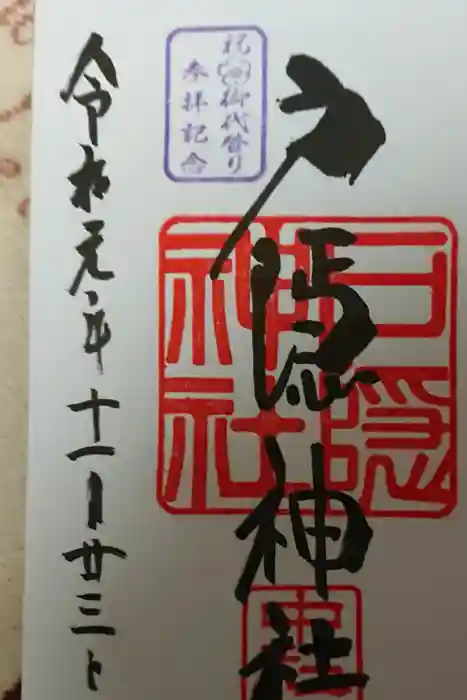 戸隠神社
戸隠
神社
祝御代替り
参拝記念
令和元年十一月廿三日